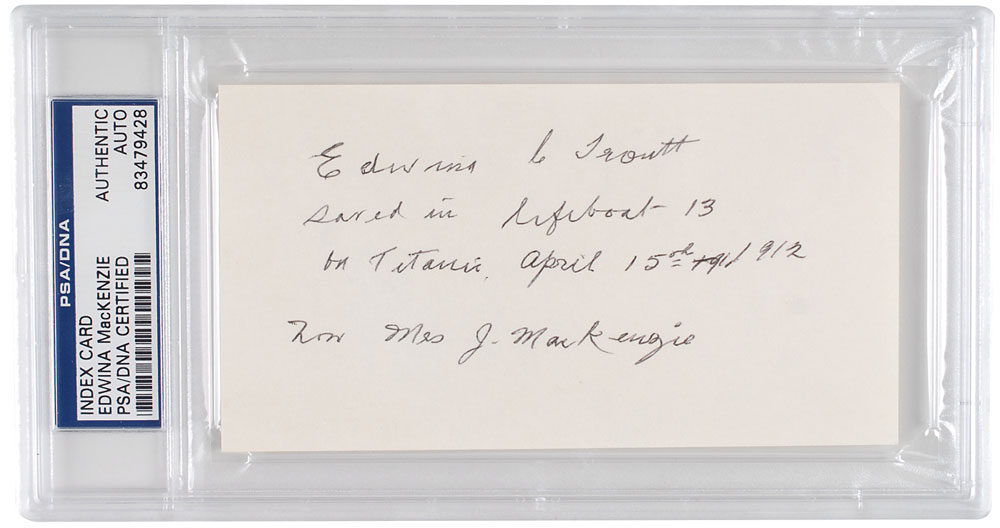 PSA/DNA
INDEX CARD
EDWINA MacKENZIE
PSA/DNA CERTIFIED
AUTHENTIC
AUTO
83479428
Edwina C Troutt
saved in lifeboat 13
on Titanic, April 15th 1912
Now Mrs J. MacKenzie